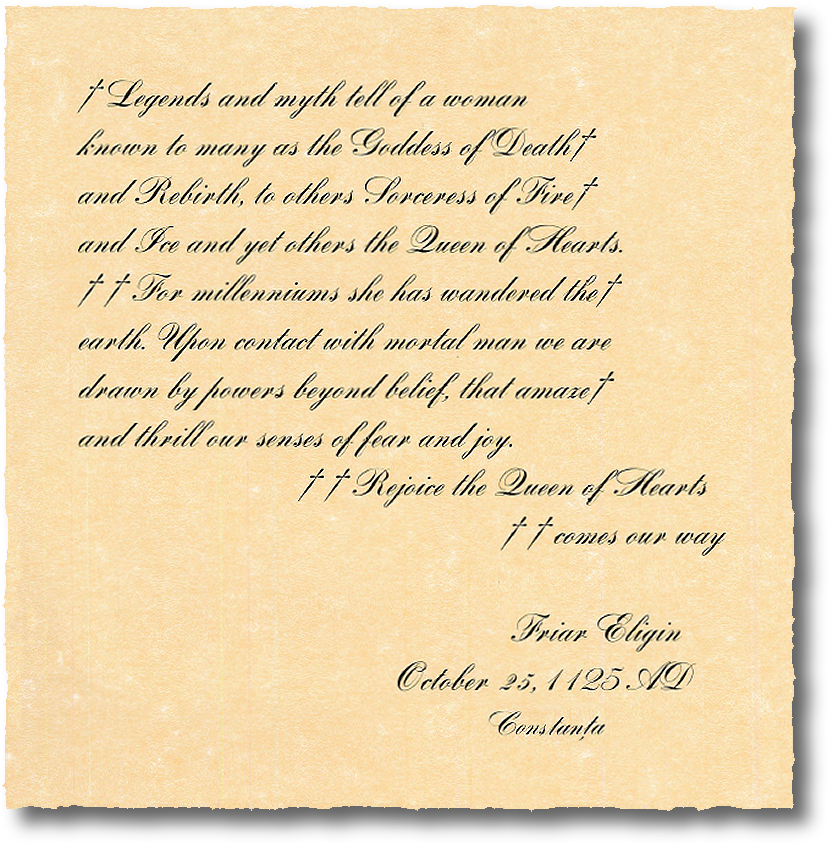 † Legends and myth tell of a woman
known to many as the Goddess of Death†
and Rebirth, to others Sorceress of Fire†
and Ice and yet others the Queen of Hearts.
† † For millenniums she has wandered the†
earth. Upon contact with mortal man we are
drawn by powers beyond belief, that amaze†
and thrill our senses of fear and joy.
† † Rejoice the Queen of Hearts
† † comes our way
Friar Eligin
October 25, 1125 AD
Constanţa